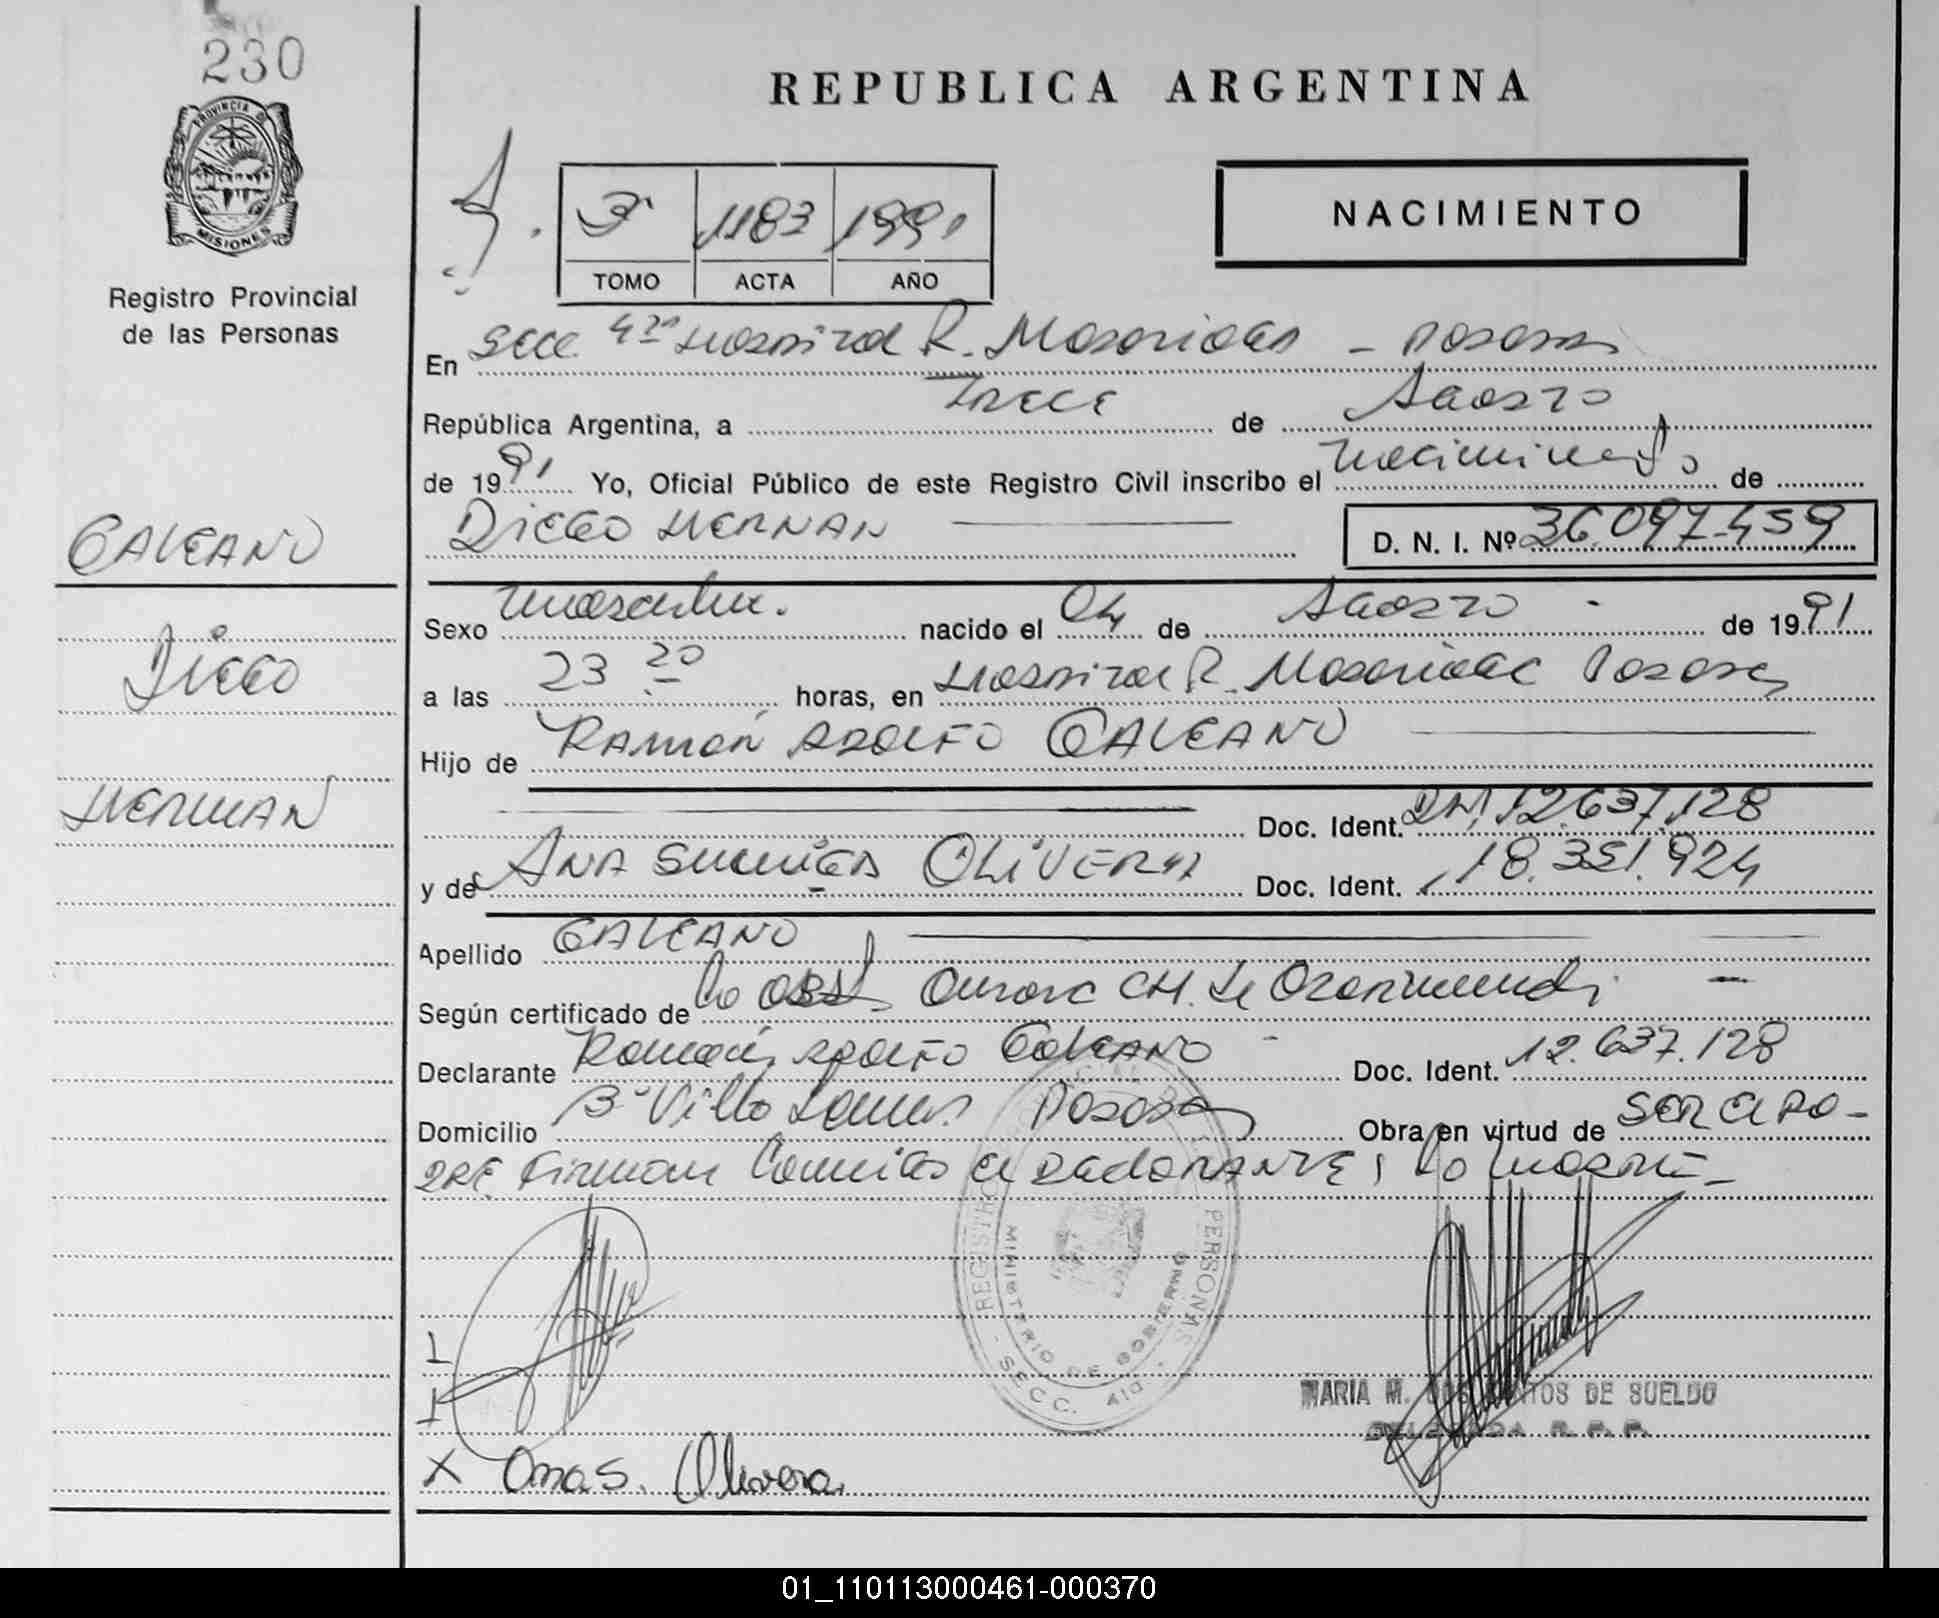 230
REPUBLICA ARGENTINA
PROVINCIA D
MISIONES
Registro Provincial
de las Personas
3º 1183 1991
TOMO ACTA AÑO
NACIMIENTO
En Secc. 4ta Hospital R. Madariaga - Posadas
República Argentina, a Trece de Agosto
de 1991 Yo, Oficial Público de este Registro Civil inscribo el nacimiento de
DIEGO HERNAN
D. N. I. Nº 36.097.459
GALEANO
DIEGO
HERNAN
Sexo masculino. nacido el 04 de Agosto de 1991
a las 23 20 horas, en Hospital R. Madariaga Posadas
Hijo de RAMÓN ADOLFO GALEANO
Doc. Ident. DNI 12.637.128
y de ANA OLIVERA Doc. Ident. 18.351.924
Apellido GALEANO
Según certificado de la OBST. Aurora CH. de
Declarante Ramón ADOLFO GALEANO Doc. Ident. 12.637.128
Domicilio Bº Villa Posadas Obra en virtud de SER EL PA-
DRE. Firman el DECLARANTE y la MADRE -
REGISTRO PROVINCIAL DE LAS PERSONAS
MINISTERIO DE GOBIERNO
- SECC. 4ta. -
MARIA M. DOS SANTOS DE SUELDO
DELEGADA R. P. P.
X Ana S. Olivera
01_110113000461-000370